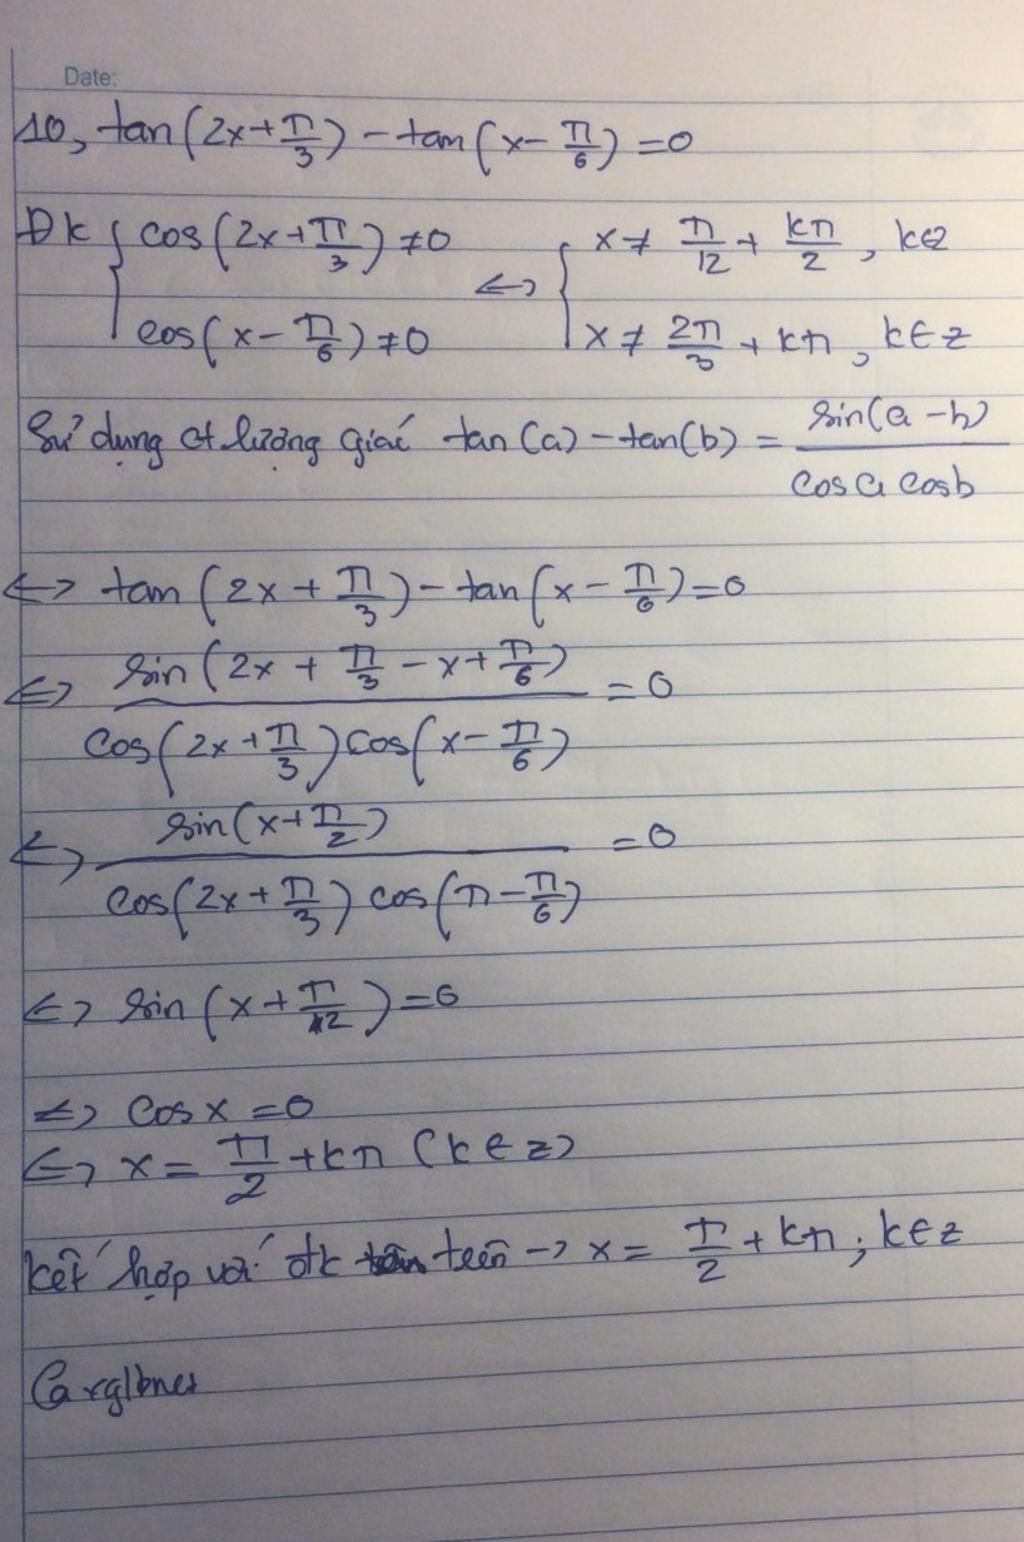 Date:
10, tan(2x+π/3) - tan(x-π/6) = 0
ĐK { cos(2x+π/3) ≠ 0 <=> { x ≠ π/12 + kπ/2, k∈Z
cos(x-π/6) ≠ 0 x ≠ 2π/3 + kπ, k∈z
Sử dụng ct lượng giác tan(a) - tan(b) = sin(a-b)/cosa cosb
<=> tan(2x+π/3) - tan(x-π/6) = 0
<=> sin(2x+π/3-x+π/6)/cos(2x+π/3)cos(x-π/6) = 0
<=> sin(x+π/2)/cos(2x+π/3) cos(π-π/6) = 0
<=> sin(x+π/2) = 0
<=> cosx = 0
<=> x = π/2 + kπ (k∈z)
kết hợp với đk trên -> x = π/2 + kπ; k∈z